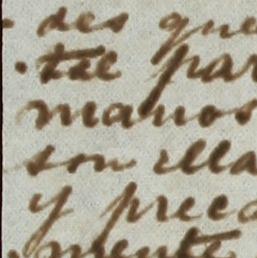 des que
par
manos
son illa
y prec
mente